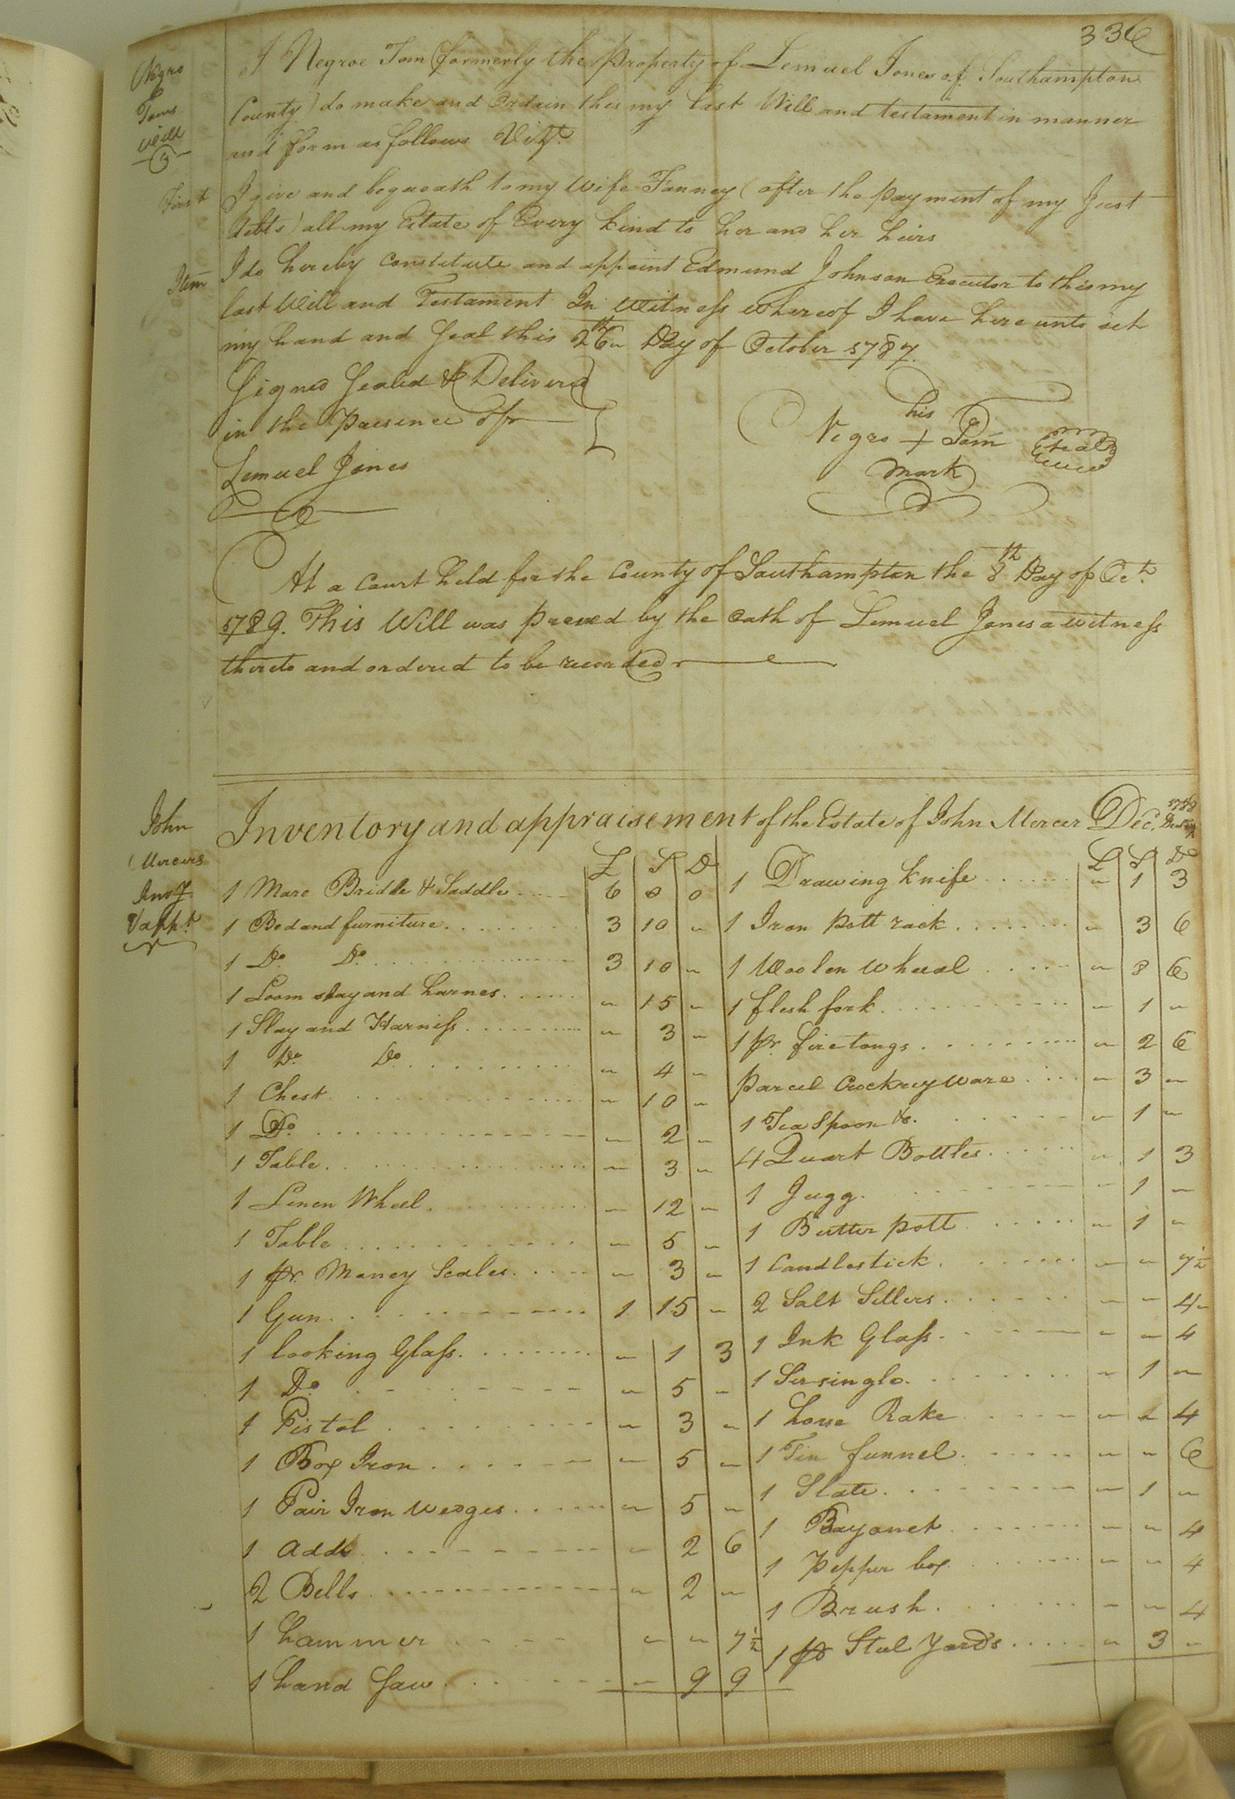 336
Negro
Toms
Will
I Negroe Tom (formerly the Property of Lemuel Jones of Southampton
County) do make and Ordain this my last Will and testament in manner
and form as follows Vizt.
First I give and bequeath to my Wife Fanney (after the payment of my Just
debts) all my Estate of Every kind to her and her heirs
Item I do hereby constitute and appoint Edmund Johnson Executor to this my
last Will and Testament In witness whereof I have hereunto set
my hand and Seal this 26th Day of October 1787.
Signed Sealed & Deliver'd
in the Presence of
Lemuel Jones
his
Negro + Tom Seal
mark
At a Court held for the County of Southampton the 8th Day of Oct.
1789. This Will was proved by the oath of Lemuel Jones a witness
thereto and ordered to be recorded
John
Mercers
Invy
& appt.
Inventory and appraisement of the Estate of John Mercer Dec.
£ S D
1 Mare Bridle & Saddle 6 0 0
1 Bed and furniture 3 10 -
1 Do. Do. 3 10 -
1 Loom slay and harnes - 15 -
1 Slay and Harness - 3 -
1 Do. Do. - 4 -
1 Chest - 10 -
1 Do. - 2 -
1 Table - 3 -
1 Linen Wheel - 12 -
1 Table - 5 -
1 pr. Money Scales - 3 -
1 Gun 1 15 -
1 looking Glass - 1 3
1 Do - 5 -
1 Pistol - 3 -
1 Box Iron - 5 -
1 Pair Iron wedges - 5 -
1 adds - 2 6
2 Bells - 2 -
1 hammer - - 7½
1 hand saw - 9 9
£ S D
1 Drawing knife - 1 3
1 Iron pott rack - 3 6
1 Woolen Wheeal - 8 6
1 flesh fork - 1 -
1 pr. fire tongs - 2 6
parcel Crockrey ware - 3 -
1 Tea Spoon &c. - 1 -
4 Quart Bottles - 1 3
1 Jugg - 1 -
1 Butter pott - 1 -
1 Candlestick - - 7½
2 Salt Sellers - - 4 -
1 Ink Glass - - 4
1 Sirsingle - 1 -
1 horse Rake - - 4
1 Tin funnel - - 6
1 Slate - 1 -
1 Bayonet - - 4
1 Pepper box - - 4
1 Brush - - 4
1 pr Steel Yards - 3 -